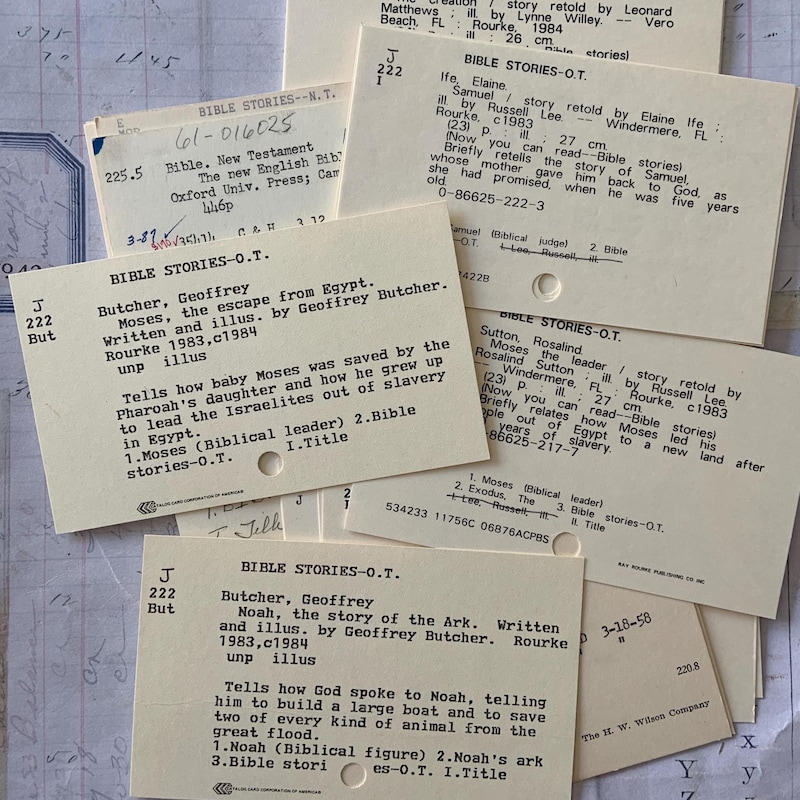 The creation / story retold by Leonard
Matthews ; ill. by Lynne Willey. -- Vero
Beach, FL : Rourke, 1984
ill. ; 26 cm.
Bible stories)
J
222
I
BIBLE STORIES-O.T.
Ife, Elaine.
Samuel / story retold by Elaine Ife ;
ill. by Russell Lee. -- Windermere, FL :
Rourke, c1983
(23) p. : ill. ; 27 cm.
(Now you can read--Bible stories)
Briefly retells the story of Samuel,
whose mother gave him back to God, as
she had promised, when he was five years
old.
0-86625-222-3
amuel (Biblical judge) 2. Bible
-O.T. I. Lee, Russell, ill.
7422B
E
BIBLE STORIES--N.T.
61-016025
225.5
Bible. New Testament
The new English Bibl
Oxford Univ. Press; Cam
446p
3-87
C & H 3.12
J
222
But
BIBLE STORIES-O.T.
Butcher, Geoffrey
Moses, the escape from Egypt.
Written and illus. by Geoffrey Butcher.
Rourke 1983,c1984
unp illus
Tells how baby Moses was saved by the
Pharoah's daughter and how he grew up
to lead the Israelites out of slavery
in Egypt.
1.Moses (Biblical leader) 2.Bible
stories-O.T. I.Title
CATALOG CARD CORPORATION OF AMERICA®
BIBLE STORIES-O.T.
Sutton, Rosalind.
Moses the leader / story retold by
Rosalind Sutton ; ill. by Russell Lee.
-- Windermere, FL : Rourke, c1983
(23) p. : ill. ; 27 cm.
(Now you can read--Bible stories)
Briefly relates how Moses led his
ople out of Egypt to a new land after
years of slavery.
-86625-217-7
1. Moses (Biblical leader)
2. Exodus, The 3. Bible stories-O.T.
I. Lee, Russell, ill. II. Title
534233 11756C 06876ACPBS
RAY ROURKE PUBLISHING CO INC
J
222
But
BIBLE STORIES-O.T.
Butcher, Geoffrey
Noah, the story of the Ark. Written
and illus. by Geoffrey Butcher. Rourke
1983,c1984
unp illus
Tells how God spoke to Noah, telling
him to build a large boat and to save
two of every kind of animal from the
great flood.
1.Noah (Biblical figure) 2.Noah's ark
3.Bible stori es-O.T. I.Title
CATALOG CARD CORPORATION OF AMERICA®
3-18-58
"
220.8
The H. W. Wilson Company
x
Y y
Z